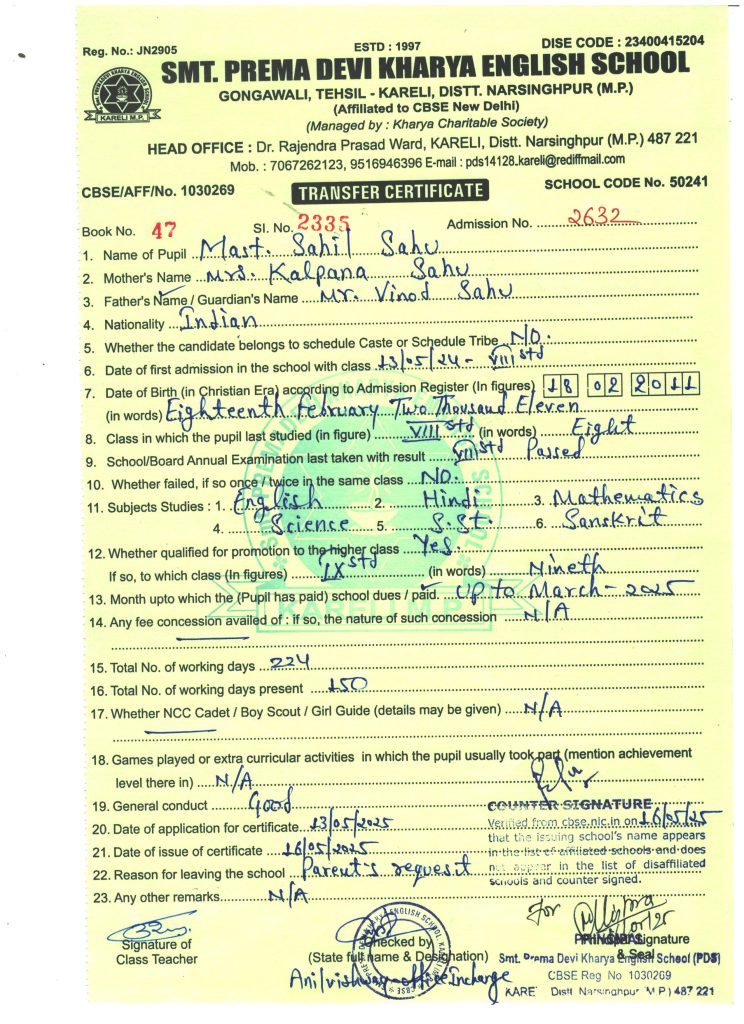 Reg. No.: JN2905 ESTD : 1997 DISE CODE : 23400415204
SMT. PREMA DEVI KHARYA ENGLISH SCHOOL
KARELI M.P.
GONGAWALI, TEHSIL - KARELI, DISTT. NARSINGHPUR (M.P.)
(Affiliated to CBSE New Delhi)
(Managed by : Kharya Charitable Society)
HEAD OFFICE : Dr. Rajendra Prasad Ward, KARELI, Distt. Narsinghpur (M.P.) 487 221
Mob. : 7067262123, 9516946396 E-mail : pds14128.kareli@rediffmail.com
CBSE/AFF/No. 1030269 TRANSFER CERTIFICATE SCHOOL CODE No. 50241
Book No. 47 SI. No. 2335 Admission No. 2632
1. Name of Pupil Mast. Sahil Sahu
2. Mother's Name Mrs. Kalpana Sahu
3. Father's Name / Guardian's Name Mr. Vinod Sahu
4. Nationality Indian
5. Whether the candidate belongs to schedule Caste or Schedule Tribe NO.
6. Date of first admission in the school with class 13/05/24 - VIII std
7. Date of Birth (in Christian Era) according to Admission Register (In figures) 18 02 2011
(in words) Eighteenth February Two Thousand Eleven
8. Class in which the pupil last studied (in figure) VIII std (in words) Eight
9. School/Board Annual Examination last taken with result VIII std Passed
10. Whether failed, if so once / twice in the same class NO.
11. Subjects Studies : 1. English 2. Hindi 3. Mathematics
4. Science 5. S.St. 6. Sanskrit
12. Whether qualified for promotion to the higher class Yes.
If so, to which class (In figures) IX std (in words) Nineth
13. Month upto which the (Pupil has paid) school dues / paid. Up to March - 2025
14. Any fee concession availed of : if so, the nature of such concession N/A
15. Total No. of working days 224
16. Total No. of working days present 150
17. Whether NCC Cadet / Boy Scout / Girl Guide (details may be given) N/A
18. Games played or extra curricular activities in which the pupil usually took part (mention achievement
level there in) N/A
19. General conduct Good
20. Date of application for certificate 13/05/2025
21. Date of issue of certificate 16/05/2025
22. Reason for leaving the school Parent's request
23. Any other remarks N/A
COUNTER SIGNATURE
Verified from cbse.nic.in on 16/05/25
that the issuing school's name appears
in the list of affiliated schools and does
not appear in the list of disaffiliated
schools and counter signed.
For
Signature of
Class Teacher
Checked by
(State full name & Designation)
Anil vishway - office Incharge
PRINCIPAL Signature
& Seal
Smt. Prema Devi Kharya English School (PDS)
CBSE Reg No 1030269
KARE Distt Narsinghpur M P ) 487 221